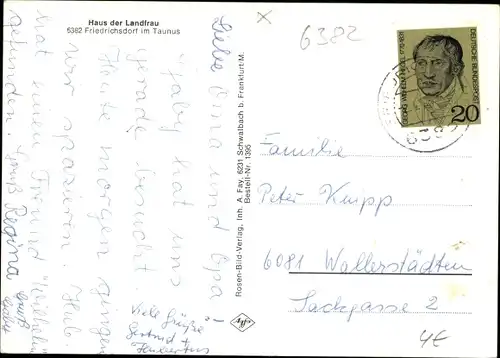 Haus der Landfrau
5382 Friedrichsdorf im Taunus
6382
Liebe Oma und Opa
Gaby hat uns
gerade besucht.
Heute morgen gingen
wir spazieren. Hub.
hat einen Freund
gefunden. Gruß Regina
Gruß
Viele Grüße
Gertrud +
Hubertus
Rosen-Bild-Verlag, Inh. A. Fay, 6231 Schwalbach b. Frankfurt/M.
Bestell-Nr. 1395
GEORG WILHELM HEGEL 1770-1831
DEUTSCHE BUNDESPOST
20
638
Familie
Peter Knipp
6081 Wallerstädten
Sackgasse 2
4€